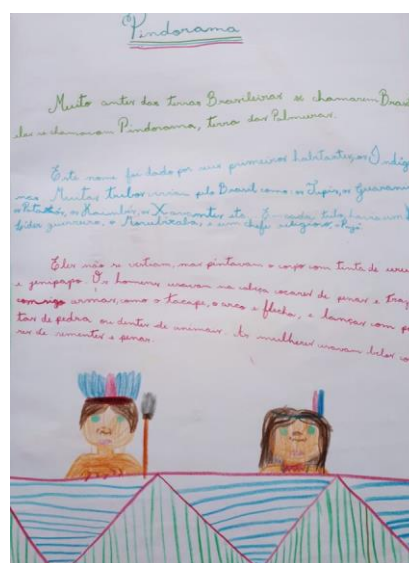 Pindorama
Muito antes das terras Brasileiras se chamarem Bras
elas se chamavam Pindorama, terra das Palmeiras.
Este nome foi dado por seus primeiros habitantes, os Indíg
nas. Muitas tribos viviam pelo Brasil como: os Tupis, os Guaranis
os, os Xavantes etc. E cada tribo havia um
líder guerreiro, o Morubixaba, e um chefe religioso, o Pajé
Eles não se vestiam, mas pintavam o corpo com tinta de urucu
e jenipapo. Os homens usavam na cabeça cocares de penas e traz
consigo armas, como o tacape, o arco e flecha, e lanças com po
tas de pedra ou dentes de animais. As mulheres usavam belos co
res de sementes e penas.